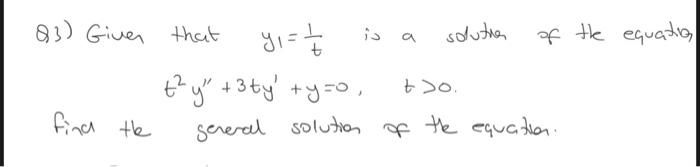 Q3) Given that y₁ = 1/t is a solution of the equation
t² y'' + 3ty' + y = 0, t > 0.
find the general solution of the equation.